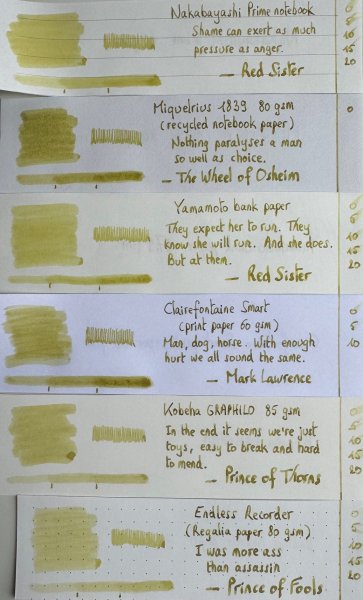 Nakabayashi Prime notebook
Shame can exert as much
pressure as anger.
— Red Sister
0
5
10
15
20
Miquelrius 1839 80 gsm
(recycled notebook paper)
Nothing paralyses a man
so well as choice.
— The Wheel of Osheim
0
Yamamoto bank paper
They expect her to run. They
know she will run. And she does.
But at them.
— Red Sister
0
5
10
15
20
Clairefontaine Smart
(print paper 60 gsm)
Man, dog, horse. With enough
hurt we all sound the same.
— Mark Lawrence
0
5
10
Kobeha GRAPHILO 85 gsm
In the end it seems we're just
toys, easy to break and hard
to mend.
— Prince of Thorns
5
10
15
20
Endless Recorder
(Regalia paper 80 gsm)
I was more ass
than assassin
— Prince of Fools
0
5
10
15
20